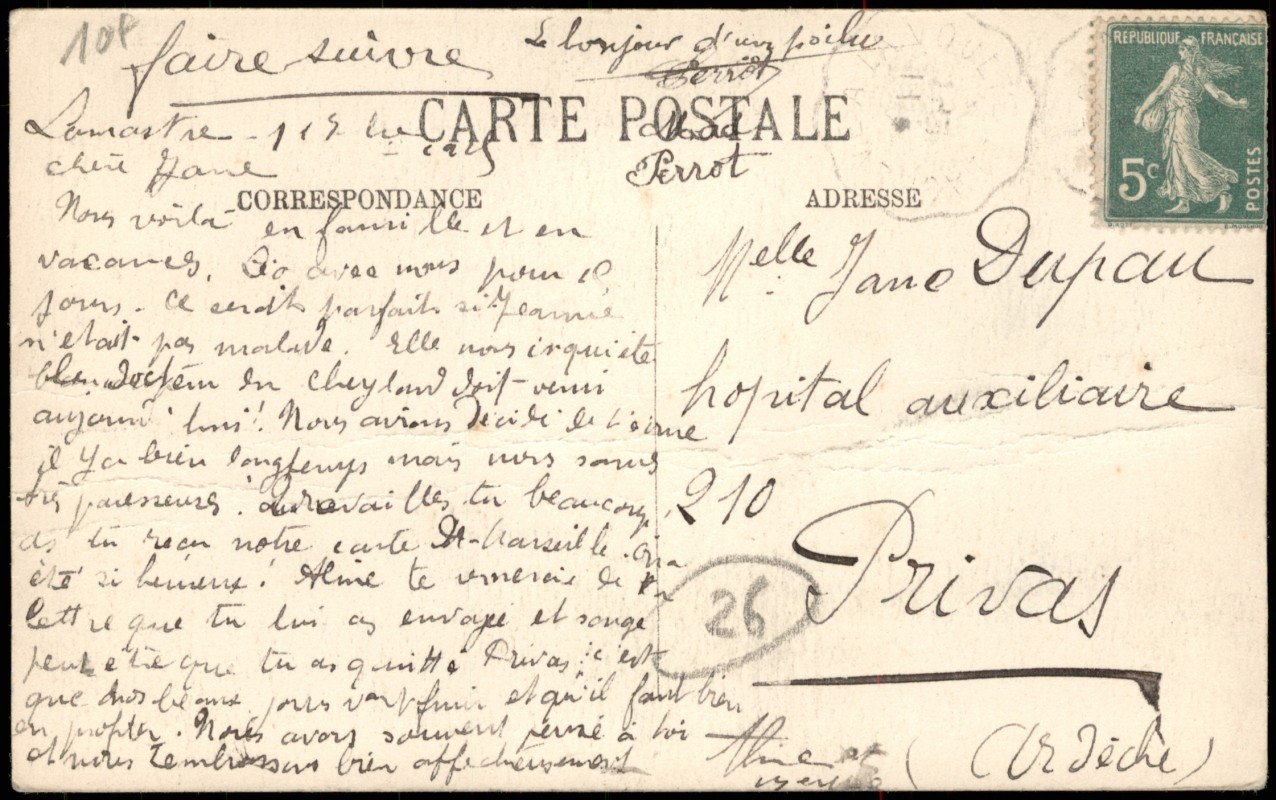 10f
faire suivre
Le bonjour d'un poilu
Perrot
CARTE POSTALE
Perrot
RÉPUBLIQUE FRANÇAISE
5c
POSTES
Lamastre
chère Jane
CORRESPONDANCE
ADRESSE
Nous voilà en famille et en
vacances. avec nous pour
jours. ce serait parfait si Jeanne
n'était pas malade. Elle nous inquiète
du Cheylard doit venir
aujourd'hui! Nous avions décidé de t'écrire
il y a bien longtemps mais nous sommes
très paresseuses! travailles tu beaucoup
as tu reçu notre carte de Marseille. on a
été si heureux! Aline te remercie de la
lettre que tu lui as envoyé et songe
peut etre que tu as quitté Privas. c'est
que nos beaux jours vont finir et qu'il faut bien
en profiter. Nous avons souvent pensé à toi
et nous t'embrassons bien affectueusement
Aline et
Melle Jane Dupau
hopital auxiliaire
210
Privas
26
(Ardèche)